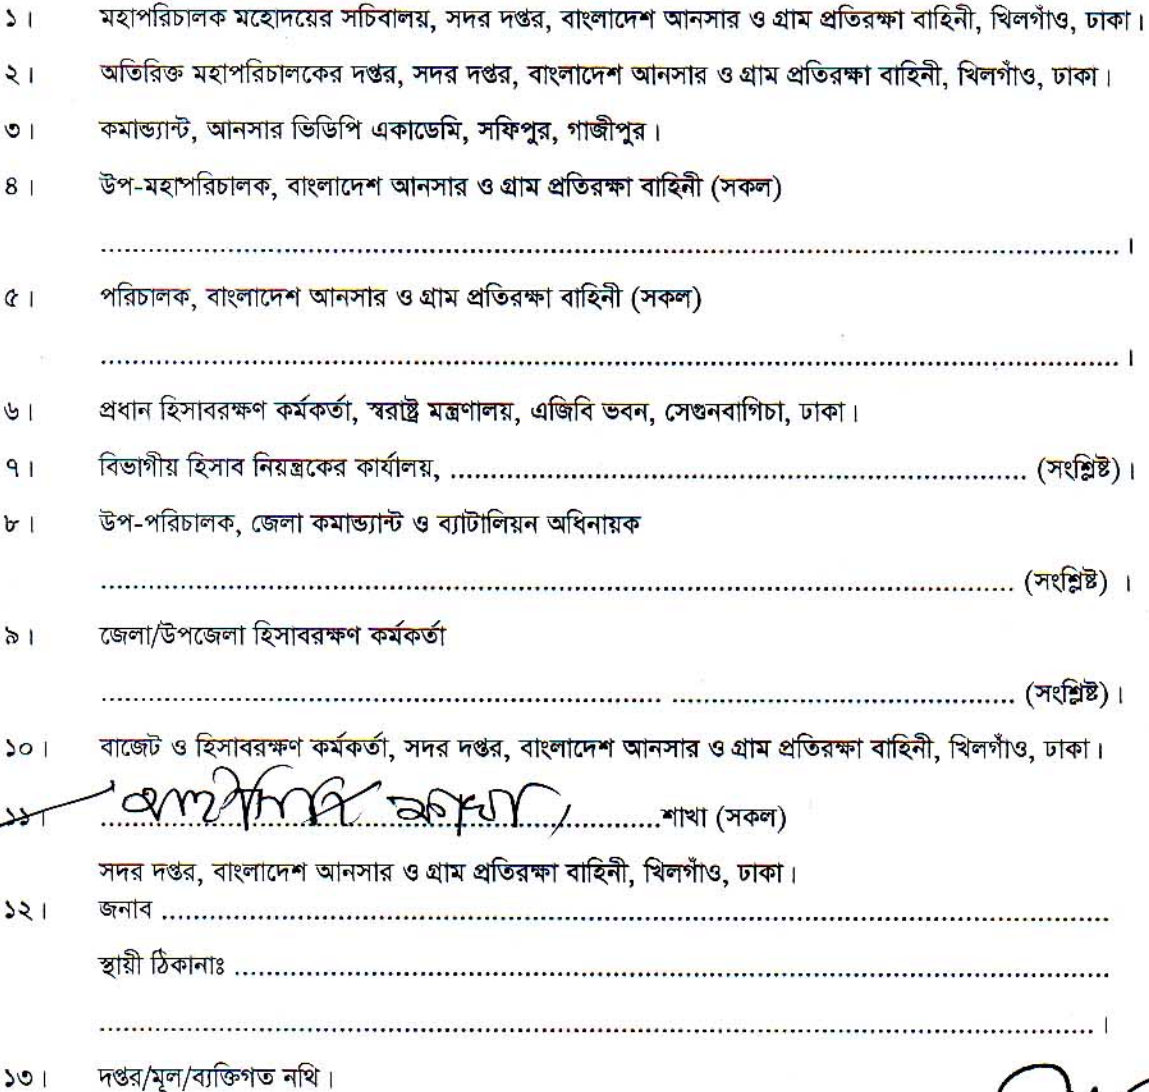 ১। মহাপরিচালক মহোদয়ের সচিবালয়, সদর দপ্তর, বাংলাদেশ আনসার ও গ্রাম প্রতিরক্ষা বাহিনী, খিলগাঁও, ঢাকা।
২। অতিরিক্ত মহাপরিচালকের দপ্তর, সদর দপ্তর, বাংলাদেশ আনসার ও গ্রাম প্রতিরক্ষা বাহিনী, খিলগাঁও, ঢাকা।
৩। কমান্ড্যান্ট, আনসার ভিডিপি একাডেমি, সফিপুর, গাজীপুর।
৪। উপ-মহাপরিচালক, বাংলাদেশ আনসার ও গ্রাম প্রতিরক্ষা বাহিনী (সকল)
.................................................................।
৫। পরিচালক, বাংলাদেশ আনসার ও গ্রাম প্রতিরক্ষা বাহিনী (সকল)
.................................................................।
৬। প্রধান হিসাবরক্ষণ কর্মকর্তা, স্বরাষ্ট্র মন্ত্রণালয়, এজিবি ভবন, সেগুনবাগিচা, ঢাকা।
৭। বিভাগীয় হিসাব নিয়ন্ত্রকের কার্যালয়, ............................................. (সংশ্লিষ্ট)।
৮। উপ-পরিচালক, জেলা কমান্ড্যান্ট ও ব্যাটালিয়ন অধিনায়ক
............................................................ (সংশ্লিষ্ট) ।
৯। জেলা/উপজেলা হিসাবরক্ষণ কর্মকর্তা
................................... ...................... (সংশ্লিষ্ট)।
১০। বাজেট ও হিসাবরক্ষণ কর্মকর্তা, সদর দপ্তর, বাংলাদেশ আনসার ও গ্রাম প্রতিরক্ষা বাহিনী, খিলগাঁও, ঢাকা।
১১। ...................................শাখা (সকল)
সদর দপ্তর, বাংলাদেশ আনসার ও গ্রাম প্রতিরক্ষা বাহিনী, খিলগাঁও, ঢাকা।
১২। জনাব ............................................................
স্থায়ী ঠিকানাঃ .......................................................
.................................................................।
১৩। দপ্তর/মূল/ব্যক্তিগত নথি।